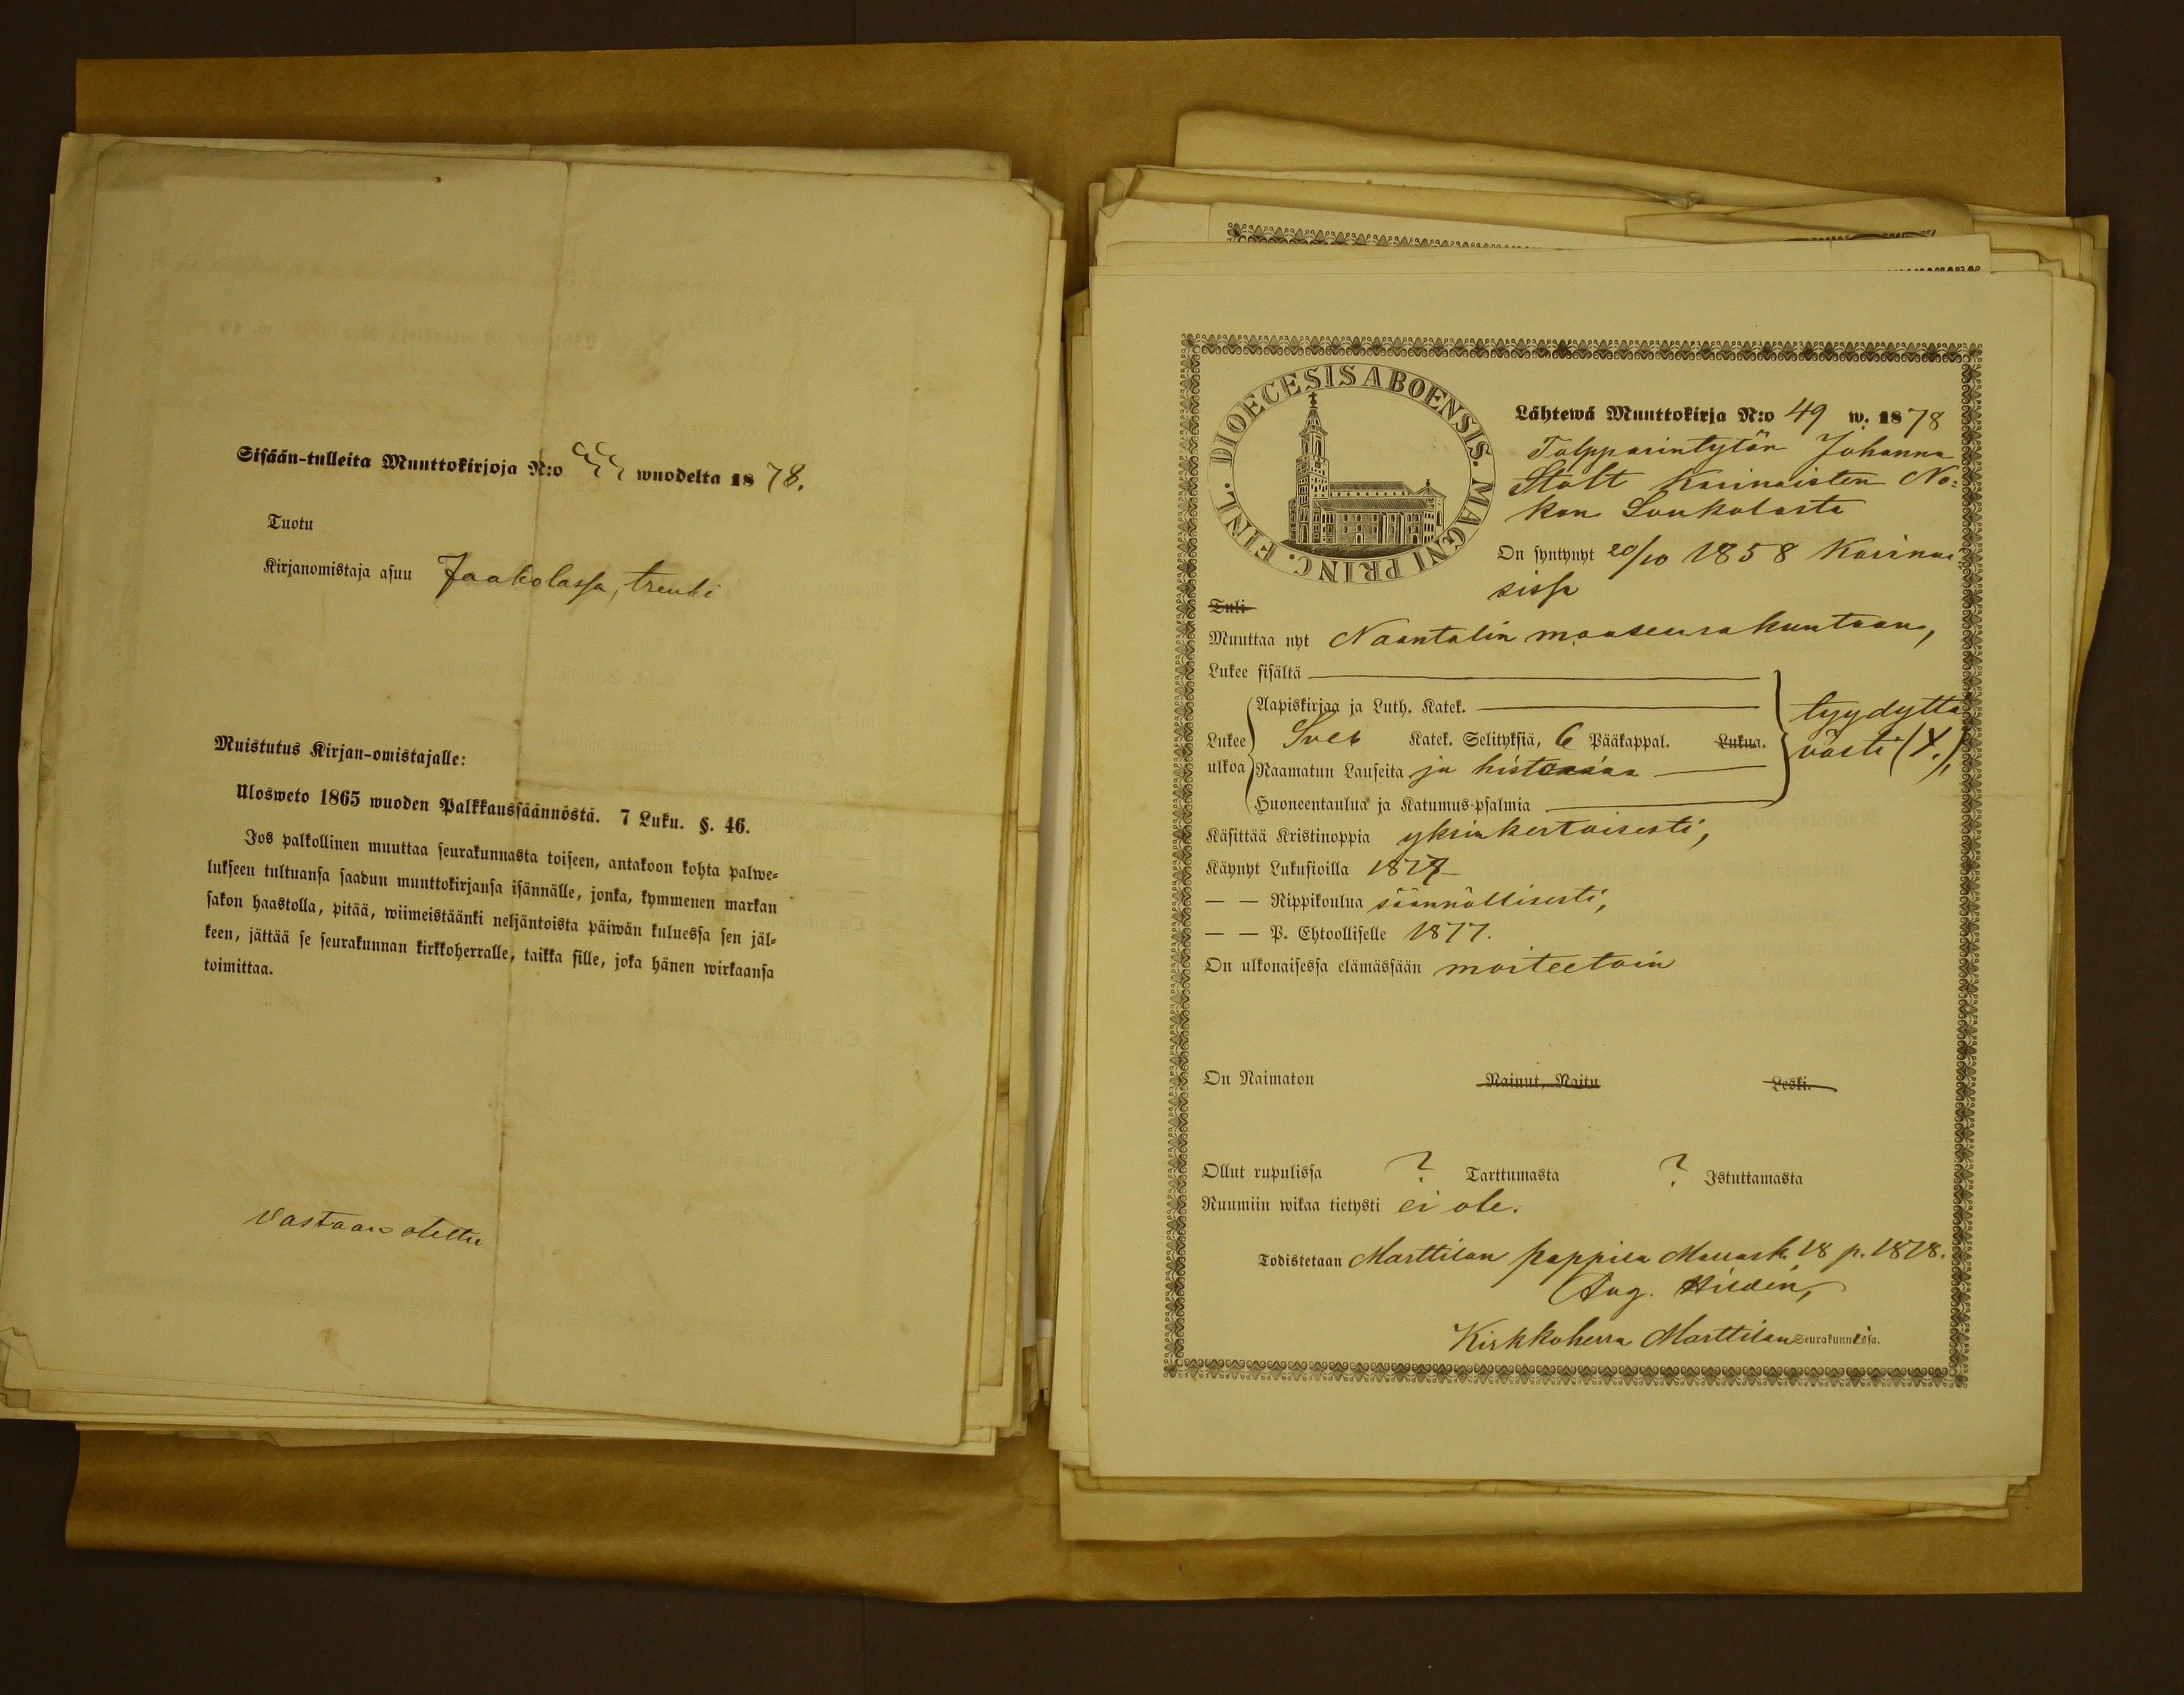 Sisään-tulleita Muuttokirjoja N:o wuodelta 1878.
Tuotu
Kirjanomistaja asuu Jaakolassa, trenki
Muistutus Kirjan-omistajalle:
Ulosweto 1865 wuoden Palkkaussäännöstä. 7 Luku. §. 46.
Jos palkollinen muuttaa seurakunnasta toiseen, antakoon kohta palwe=
lukseen tultuansa saadun muuttokirjansa isännälle, jonka, kymmenen markan
sakon haastolla, pitää, wiimeistäänki neljäntoista päiwän kuluessa sen jäl=
keen, jättää se seurakunnan kirkkoherralle, taikka sille, joka hänen wirkaansa
toimittaa.
Vastaan otettu
DIOECESIS ABOENSIS. MAGNI PRINC. FINL.
Lähtewä Muuttokirja N:o 49 w. 1878
Talpparintytön Johanna
Stolt Karinaisten No=
kan Soukolasta
On syntynyt 20/10 1858 Karinai=
sissa
Tuli
Muuttaa nyt Naantalin maaseurakuntaan,
Lukee sisältä
Aapiskirjaa ja Luth. Katek.
tyydyttä
Lukee Sveb Katek. Selityksiä, 6 Pääkappal. Lukua.
västi (Y.),
ulkoa Raamatun Lauseita ja historiaa
Huoneentaulua ja Katumus-psalmia
Käsittää Kristinoppia yksinkertaisesti,
Käynyt Lukusioilla 1877
— — Rippikoulua säännöllisesti,
— — P. Ehtoolliselle 1877.
On ulkonaisessa elämässään moiteetoin
On Naimaton Nainut, Naitu Leski.
Ollut rupulissa ? Tarttumasta ? Istuttamasta
Ruumiin wikaa tietysti ei ole.
Todistetaan Marttilan pappila Marrask. 18 p. 1878.
Aug. Hildén,
Kirkkoherra Marttilan Seurakunnissa.